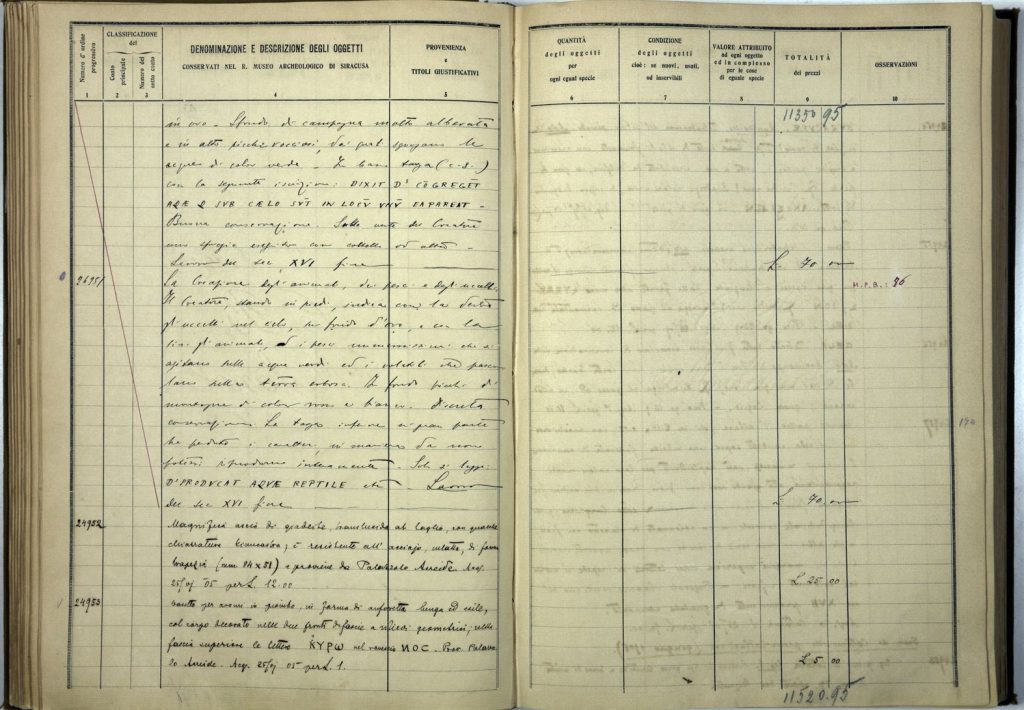 Numero d'ordine progressivo
CLASSIFICAZIONE del
Conto principale
Numero del sotto conto
DENOMINAZIONE E DESCRIZIONE DEGLI OGGETTI
CONSERVATI NEL R. MUSEO ARCHEOLOGICO DI SIRACUSA
PROVENIENZA
e
TITOLI GIUSTIFICATIVI
1 2 3 4 5
in oro - Sfondo di campagna molto alberata
e in alto picchi rocciosi, da quali sgorgano le
acque di color verde - In basso targa (c.s.)
con la seguente iscrizione: DIXIT D' CŌGREGĒT
AQÆ Q SVB CÆLO SVT IN LOCV VNV
Buona conservazione. Sulla veste del Creatore
uno sfregio eseguito con coltello od altro -
Lavoro del sec. XVI fine
26951
La Creazione degli animali, dei pesci e degli uccelli.
Il Creatore, stando in piedi, indica con la destra
gli uccelli nel cielo, su fondo d'oro, e con la
gli animali, ed i pesci che si
agitano nelle acque verdi ed i volatili che
sulla terra erbosa. In fondo picchi di
montagne di color e bianco. Discreta
conservazione. La targa inferiore in gran parte
ha perduto i caratteri, in maniera da non
potersi riprodurre interamente - Solo si legge:
D' PRODVCAT AQVÆ REPTILE etc. - Lavoro
del sec XVI fine
24952
Magnifica ascia di giadeite, translucida al taglio, con qualche
chiazzatura biancastra; è resistente all'acciajo, intatta, di forma
trapezia (mm 84x51) e proviene da Palazzolo Acreide. Acq.
25/VI 05 per L. 12.00
24953
per in piombo, in forma di anforetta lunga ed esile,
col corpo decorato nelle due fronti di fascie a geometrici; nella
fascia superiore le lettere ΚΥΡѠ nel rovescio ИΟC. Prov. Palazzo-
lo Acreide. Acq. 25/VI 05 per L. 1.
QUANTITÀ
degli oggetti
per
ogni egual specie
CONDIZIONE
degli oggetti
cioè: se nuovi, usati,
od inservibili
VALORE ATTRIBUITO
ad ogni oggetto
ed in complesso
per le cose
di eguale specie
TOTALITÀ
dei prezzi
OSSERVAZIONI
6 7 8 9 10
11350 95
L. 70 00
M.P.B.: 76
L. 70 00
L. 25 00
L. 5 00
11520.95